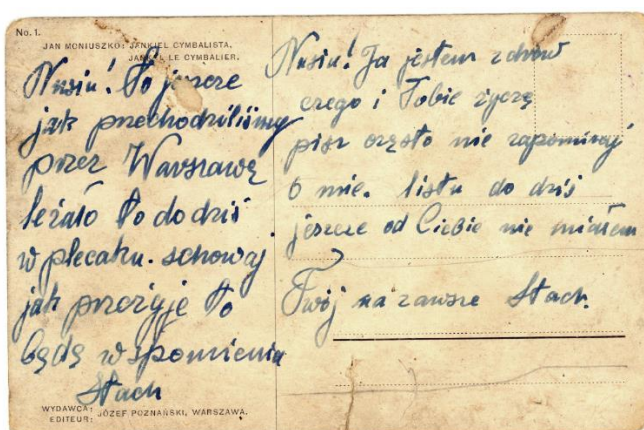 No. 1.
JAN MONIUSZKO: JANKIEL CYMBALISTA.
JANKIEL LE CYMBALIER.
Nusiu! To jeszcze
jak przechodziliśmy
przez Warszawę
leżało to do dziś
w plecaku. schowaj
jak przeżyje to
będą wspomienia
Stach
WYDAWCA:
EDITEUR: JÓZEF POZNAŃSKI, WARSZAWA.
Nusiu! Ja jestem zdrów
czego i Tobie życzę
pisz często nie zapominaj
o mie. listu do dziś
jeszcze od Ciebie nie miałem
Twój na zawsze Stach.